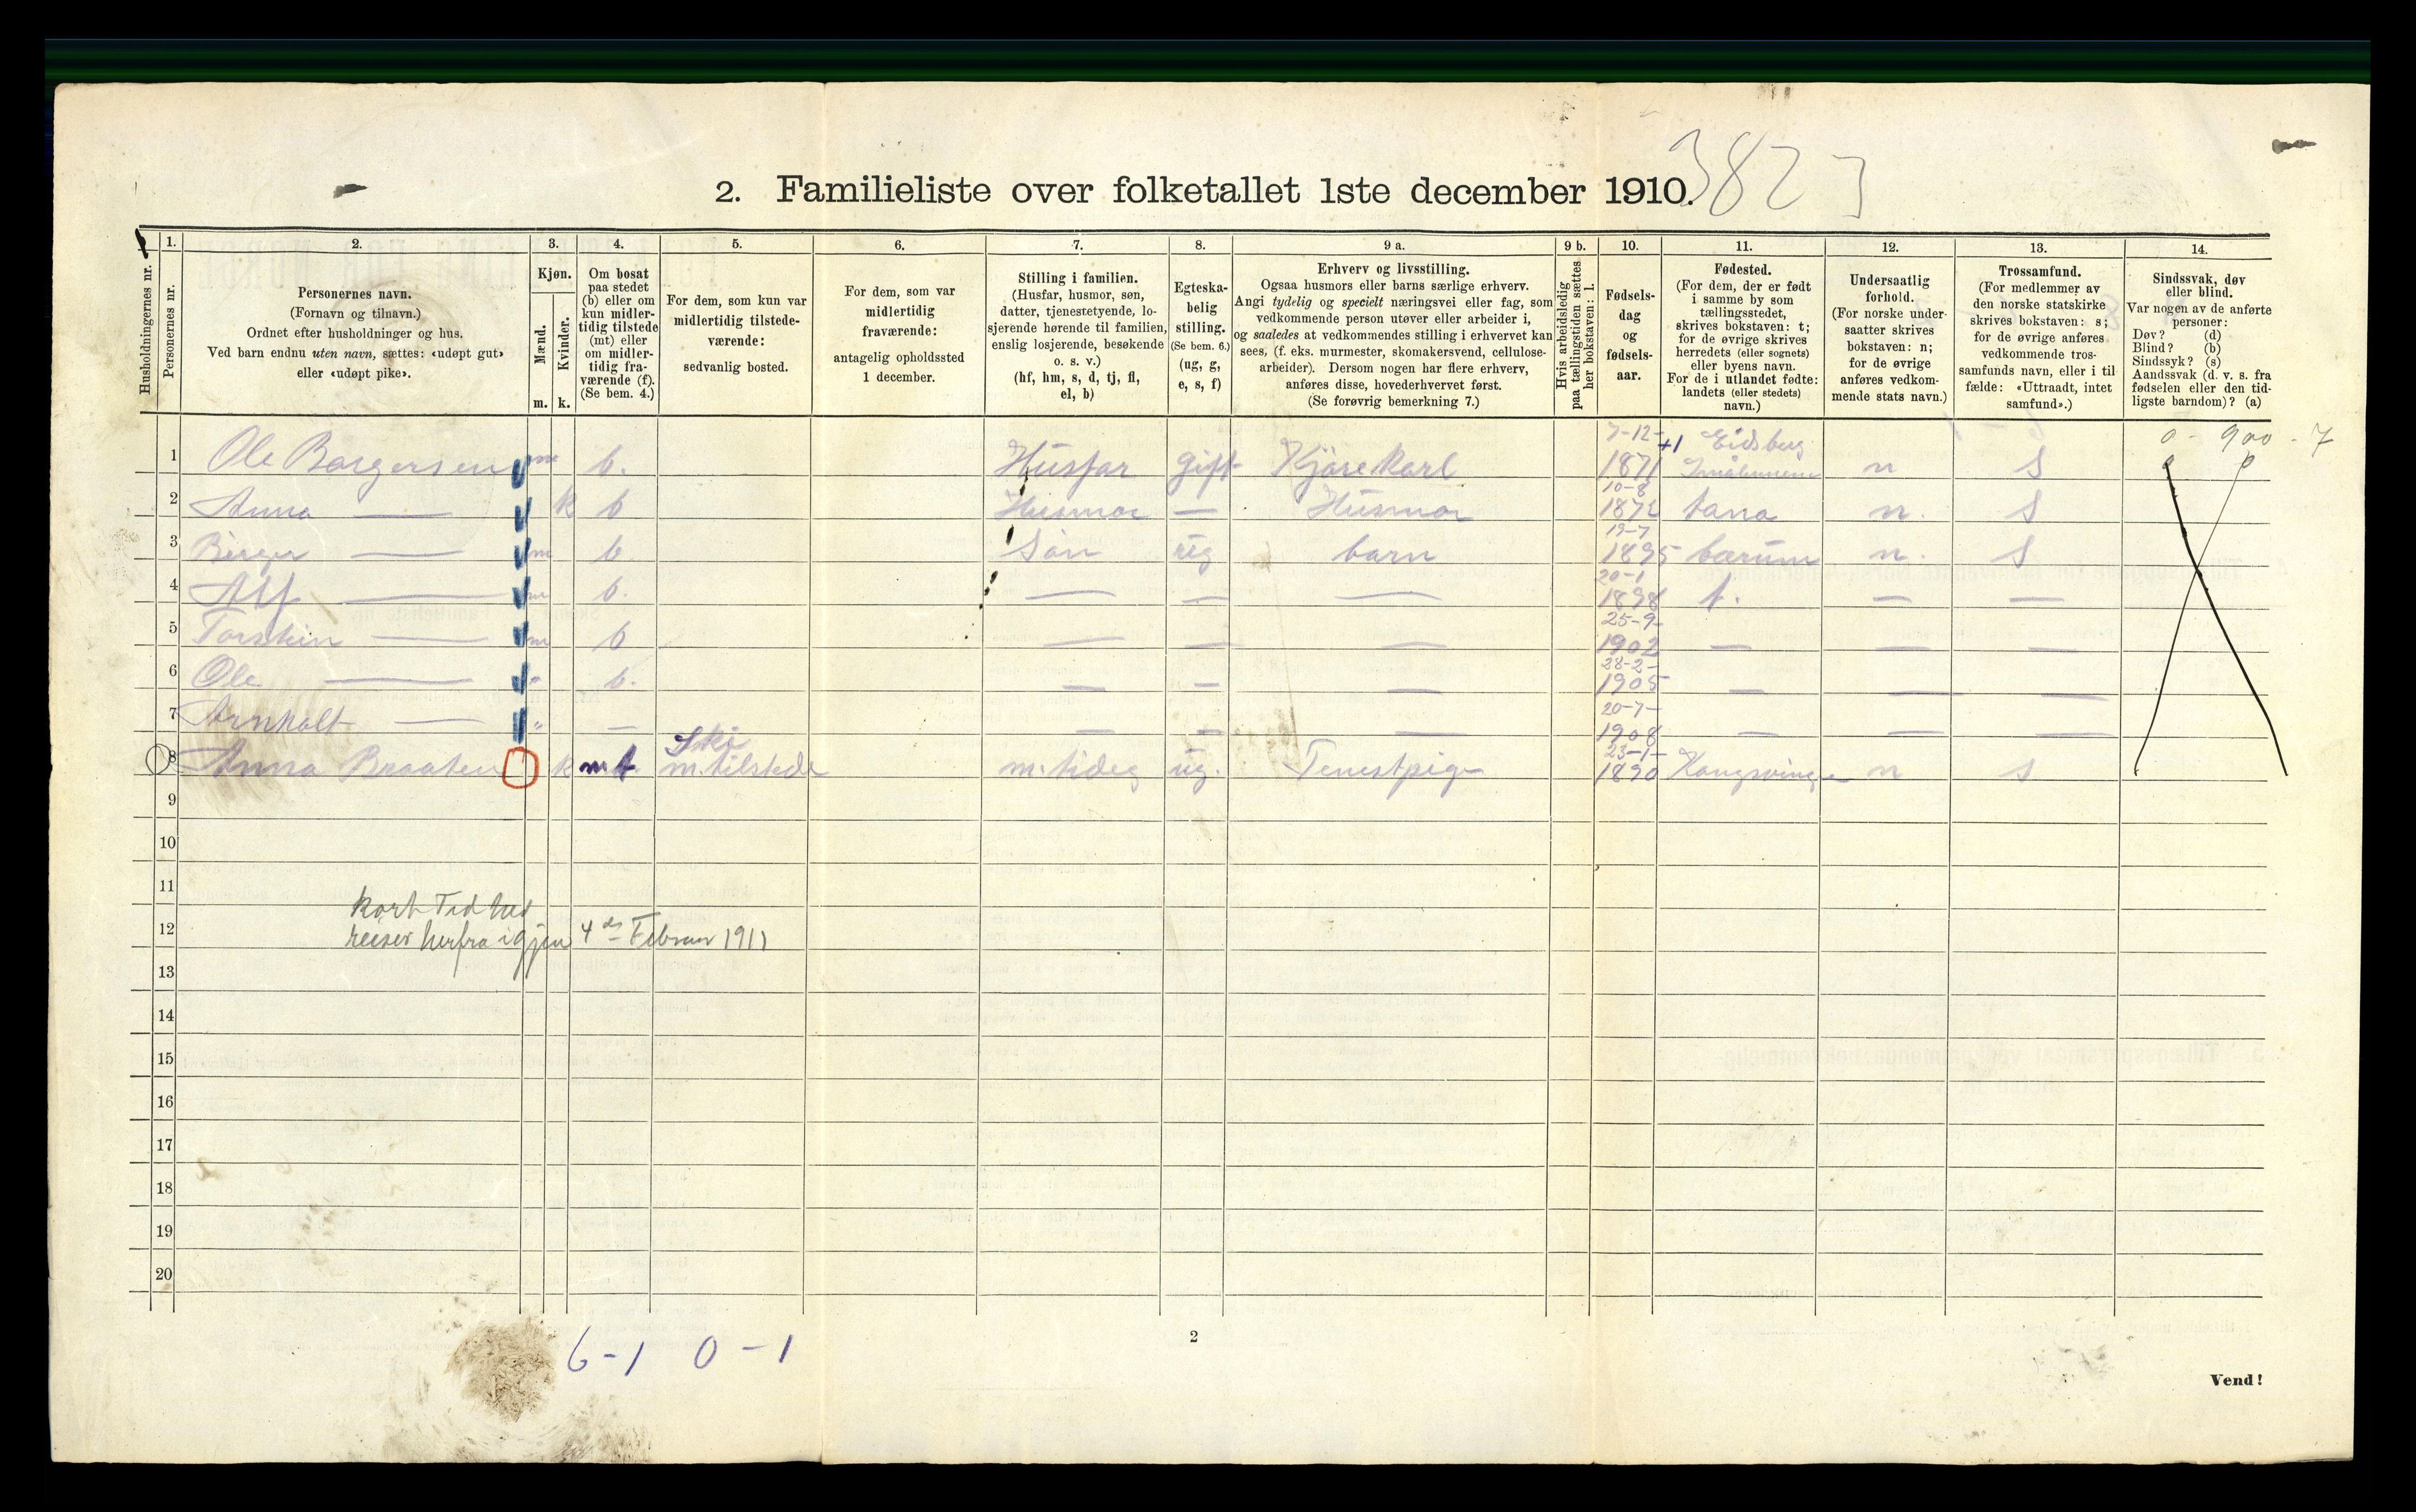 3823
2. Familieliste over folketallet 1ste december 1910.
Husholdningernes nr.
1. Personernes nr.
2. Personernes navn.
(Fornavn og tilnavn.)
Ordnet efter husholdninger og hus.
Ved barn endnu uten navn, sættes: «udøpt gut»
eller «udøpt pike».
3. Kjøn.
Mænd. m.
Kvinder. k.
4. Om bosat
paa stedet
(b) eller om
kun midler-
tidig tilstede
(mt) eller
om midler-
tidig fra-
værende (f).
(Se bem. 4.)
5. For dem, som kun var
midlertidig tilstede-
værende:
sedvanlig bosted.
6. For dem, som var
midlertidig
fraværende:
antagelig opholdssted
1 december.
7. Stilling i familien.
(Husfar, husmor, søn,
datter, tjenestetyende, lo-
sjerende hørende til familien,
enslig losjerende, besøkende
o. s. v.)
(hf, hm, s, d, tj, fl,
el, b)
8. Egteska-
belig
stilling.
(Se bem. 6.)
(ug, g,
e, s, f)
9 a. Erhverv og livsstilling.
Ogsaa husmors eller barns særlige erhverv.
Angi tydelig og specielt næringsvei eller fag, som
vedkommende person utøver eller arbeider i,
og saaledes at vedkommendes stilling i erhvervet kan
sees, (f. eks. murmester, skomakersvend, cellulose-
arbeider). Dersom nogen har flere erhverv,
anføres disse, hovederhvervet først.
(Se forøvrig bemerkning 7.)
9 b. Hvis arbeidsledig
paa tællingstiden sættes
her bokstaven: l.
10. Fødsels-
dag
og
fødsels-
aar.
11. Fødested.
(For dem, der er født
i samme by som
tællingsstedet,
skrives bokstaven: t;
for de øvrige skrives
herredets (eller sognets)
eller byens navn.
For de i utlandet fødte:
landets (eller stedets)
navn.)
12. Undersaatlig
forhold.
(For norske under-
saatter skrives
bokstaven: n;
for de øvrige
anføres vedkom-
mende stats navn.)
13. Trossamfund.
(For medlemmer av
den norske statskirke
skrives bokstaven: s;
for de øvrige anføres
vedkommende tros-
samfunds navn, eller i til
fælde: «Uttraadt, intet
samfund».)
14. Sindssvak, døv
eller blind.
Var nogen av de anførte
personer:
Døv? (d)
Blind? (b)
Sindssyk? (s)
Aandssvak (d. v. s. fra
fødselen eller den tid-
ligste barndom)? (a)
0 - 900 - 7
1 Ole Borgersen m b. Husfar gift Kjørekarl 7-12- 1871 +1 Eidsberg Smålenene n S
2 Anna — k b Husmor — Husmor 10-8 1872 tana n. S
3 Birger — m b Sön ug barn 19-7 1895 bærum n. S
4 Alf — m b. — — — 20-1 1898 t. — —
5 Torstein — m b — — — 25-9- 1902 — — —
6 Ole — " b. — — — 28-2- 1905 — — —
7 Arnholt — " — — — — 20-7- 1908 — — —
8 Anna Braaten k mt Ski m. tilstede m. tideg ug. Tenestpige 23-1- 1890 Kongsvinger n S
9
10
11
kort Tid her
12
reiser herfra igjen 4de Februar 1911
13
14
15
16
17
18
19
20
6-1 0-1
2
Vend!